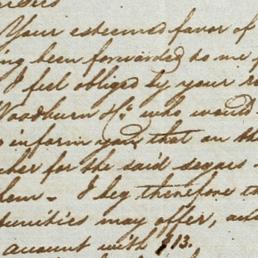 Your esteemed favor of
ing been forwarded to me
I feel obliged by your
Woodburn Esqr. who would
to inform you, that on the
cher for the said segars
them - I beg therefore th
tunities may offer, and
account with $13.